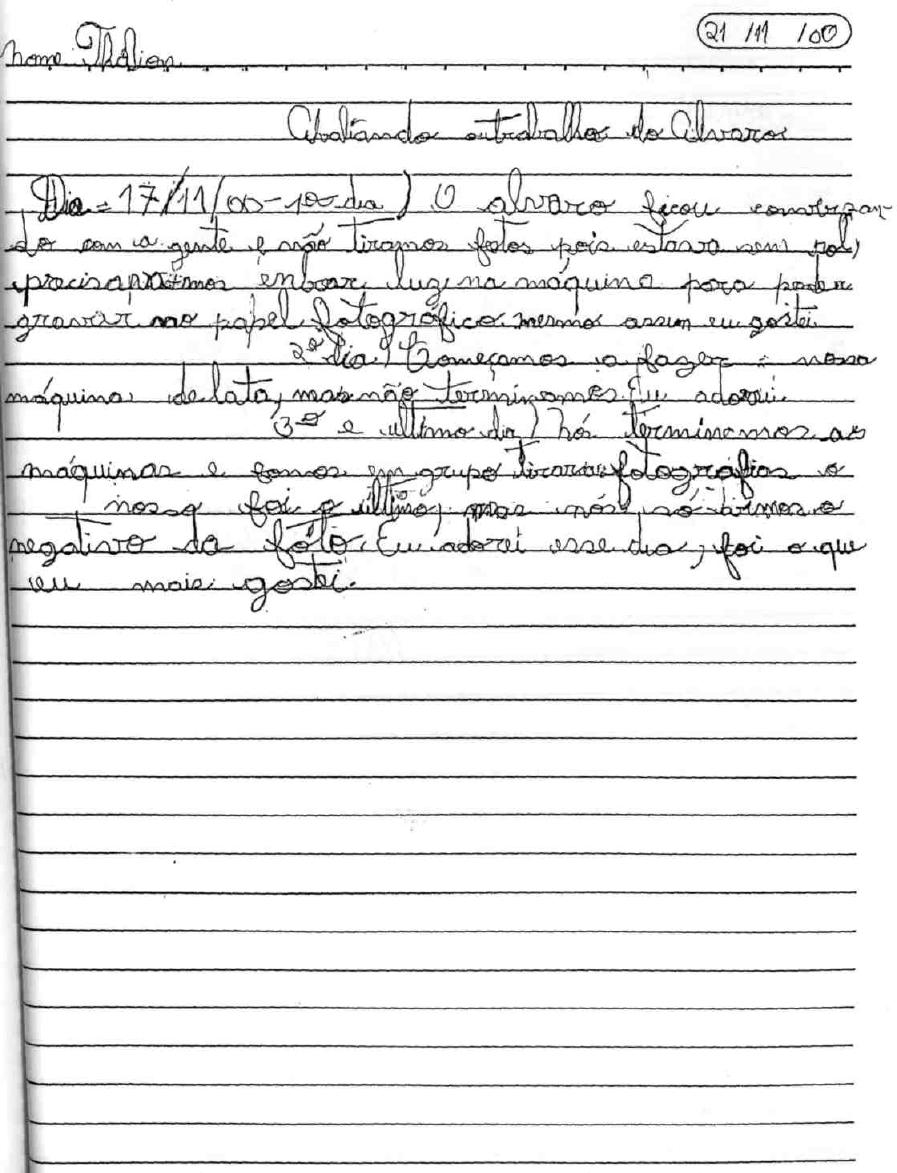 21 /11 /00
nome: Thalion
Abaliando outrabalho do Alvaro
Dia = 17/11/00 - 1º dia) O alvaro ficou conversan-
do com a gente e não tiramos fotos pois estava sem sol,
precisavamos enboar luz na máquina para poder
gravar no papel fotográfico. mesmo assim eu gostei
2º dia) Começamos a fazer a nossa
máquina de lata, mas não terminamos. Eu adorei.
3º e ultimo dia) nós terminamos as
máquinas e fomos em grupo tirar as fotografias a
nossa foi a ultima, mas nós só vimos o
negativo da fóto. Eu adorei esse dia, foi o que
eu mais gostei.